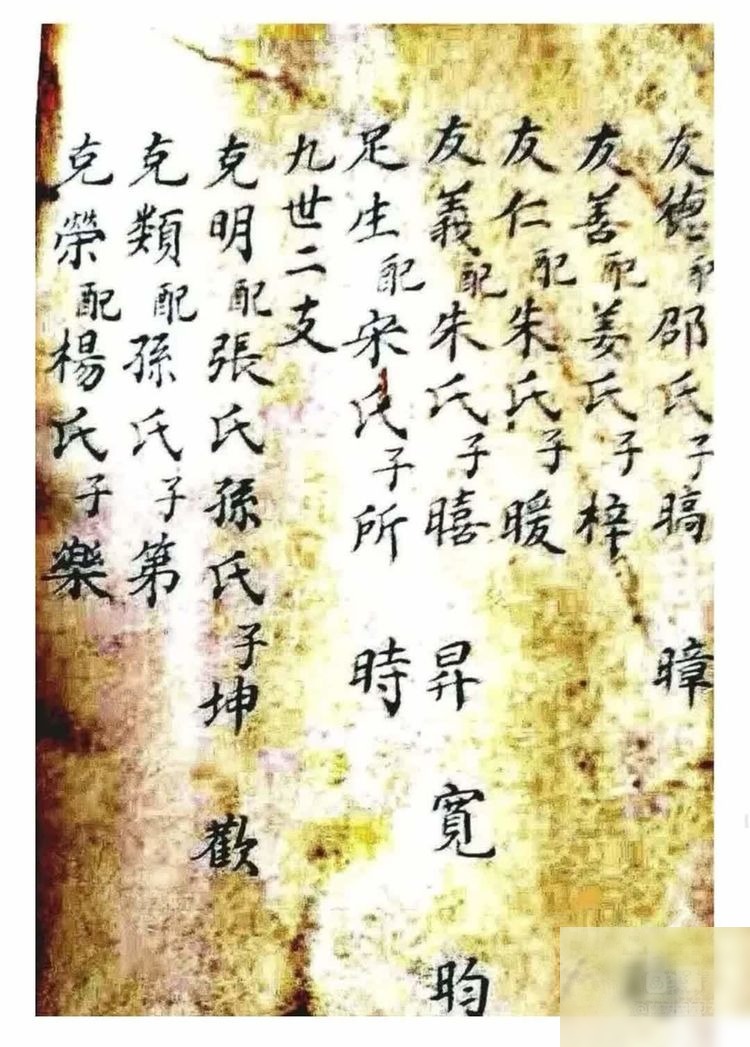 友德配邵氏子暠 暲
友善配姜氏子梓
友仁配朱氏子暖
友義配朱氏子暿 昇 寬 昀
足生配宋氏子所 時
九世二支
克明配張氏孫氏子坤 歡
克類配孫氏子第
克榮配楊氏子樂